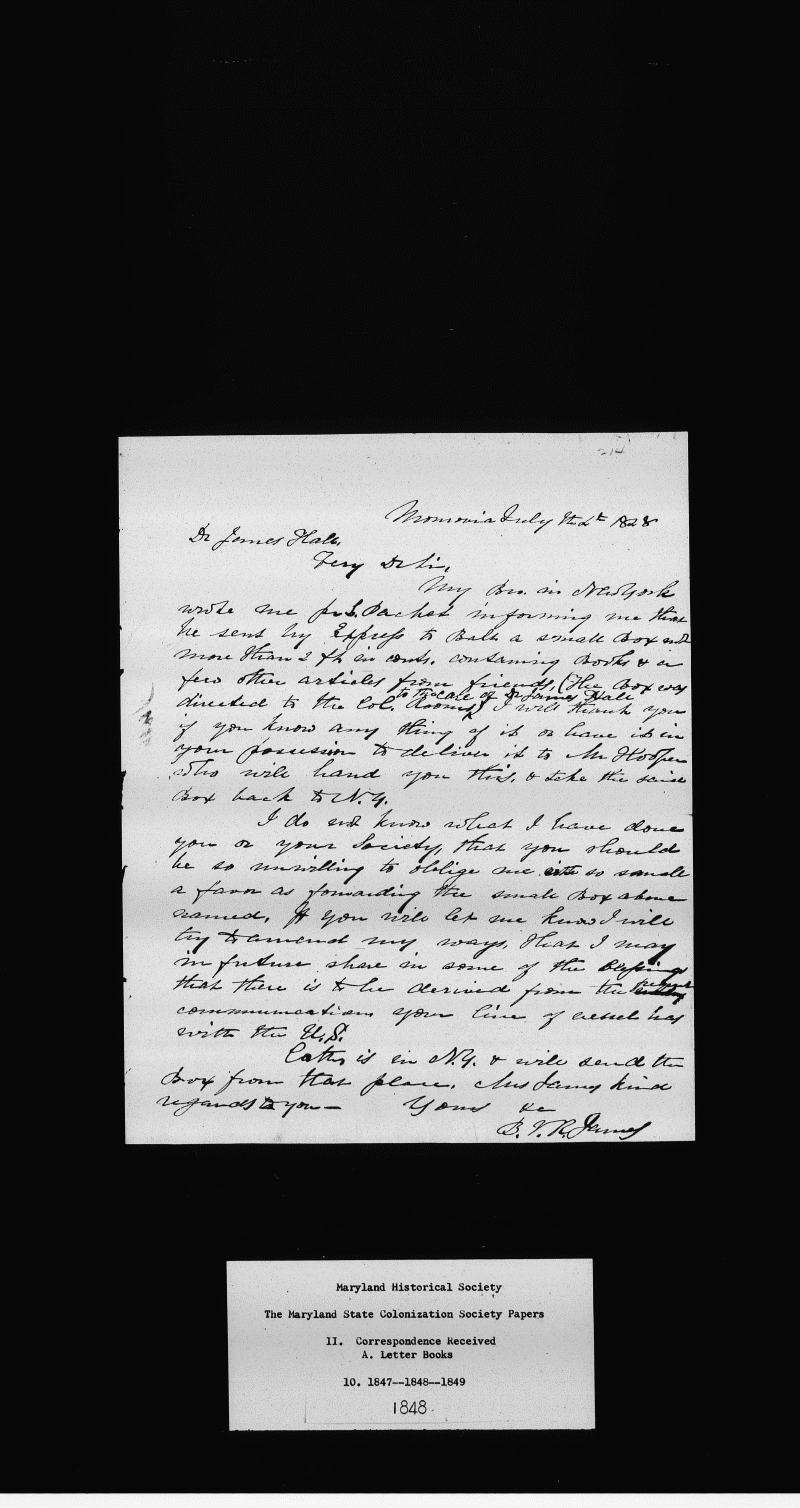 214
Monrovia July 4th 1848
Dr James Hall,
Very Dr Sir,
My Bro. in New York
wrote me pr L. Packet informing me that
he sent by Express to Balt a small Box not
more than 2 ft in conts. containing Books & a
few other articles from friends, (the Box was
to the care of Dr James Hall
directed to the Col. Rooms) I will thank you
if you know any thing of it or have it in
your possession to deliver it to Mr Hooper
who will hand you this. & take the said
Box back to N.Y.
I do not know what I have done
you or your Society, that you should
be so unwilling to oblige me so small
a favor as forwarding the small Box above
named, If you will let me know I will
try to amend my ways, that I may
in future share in some of the blessings
that there is to be derived from the
communications your line of vessel has
with the U.S.
is in N.Y. & will send the
Box from that place. Mrs James kind
regards to you— Yours &c
B. V. R. James
Maryland Historical Society
The Maryland State Colonization Society Papers
II. Correspondence Received
A. Letter Books
10. 1847--1848--1849
1848